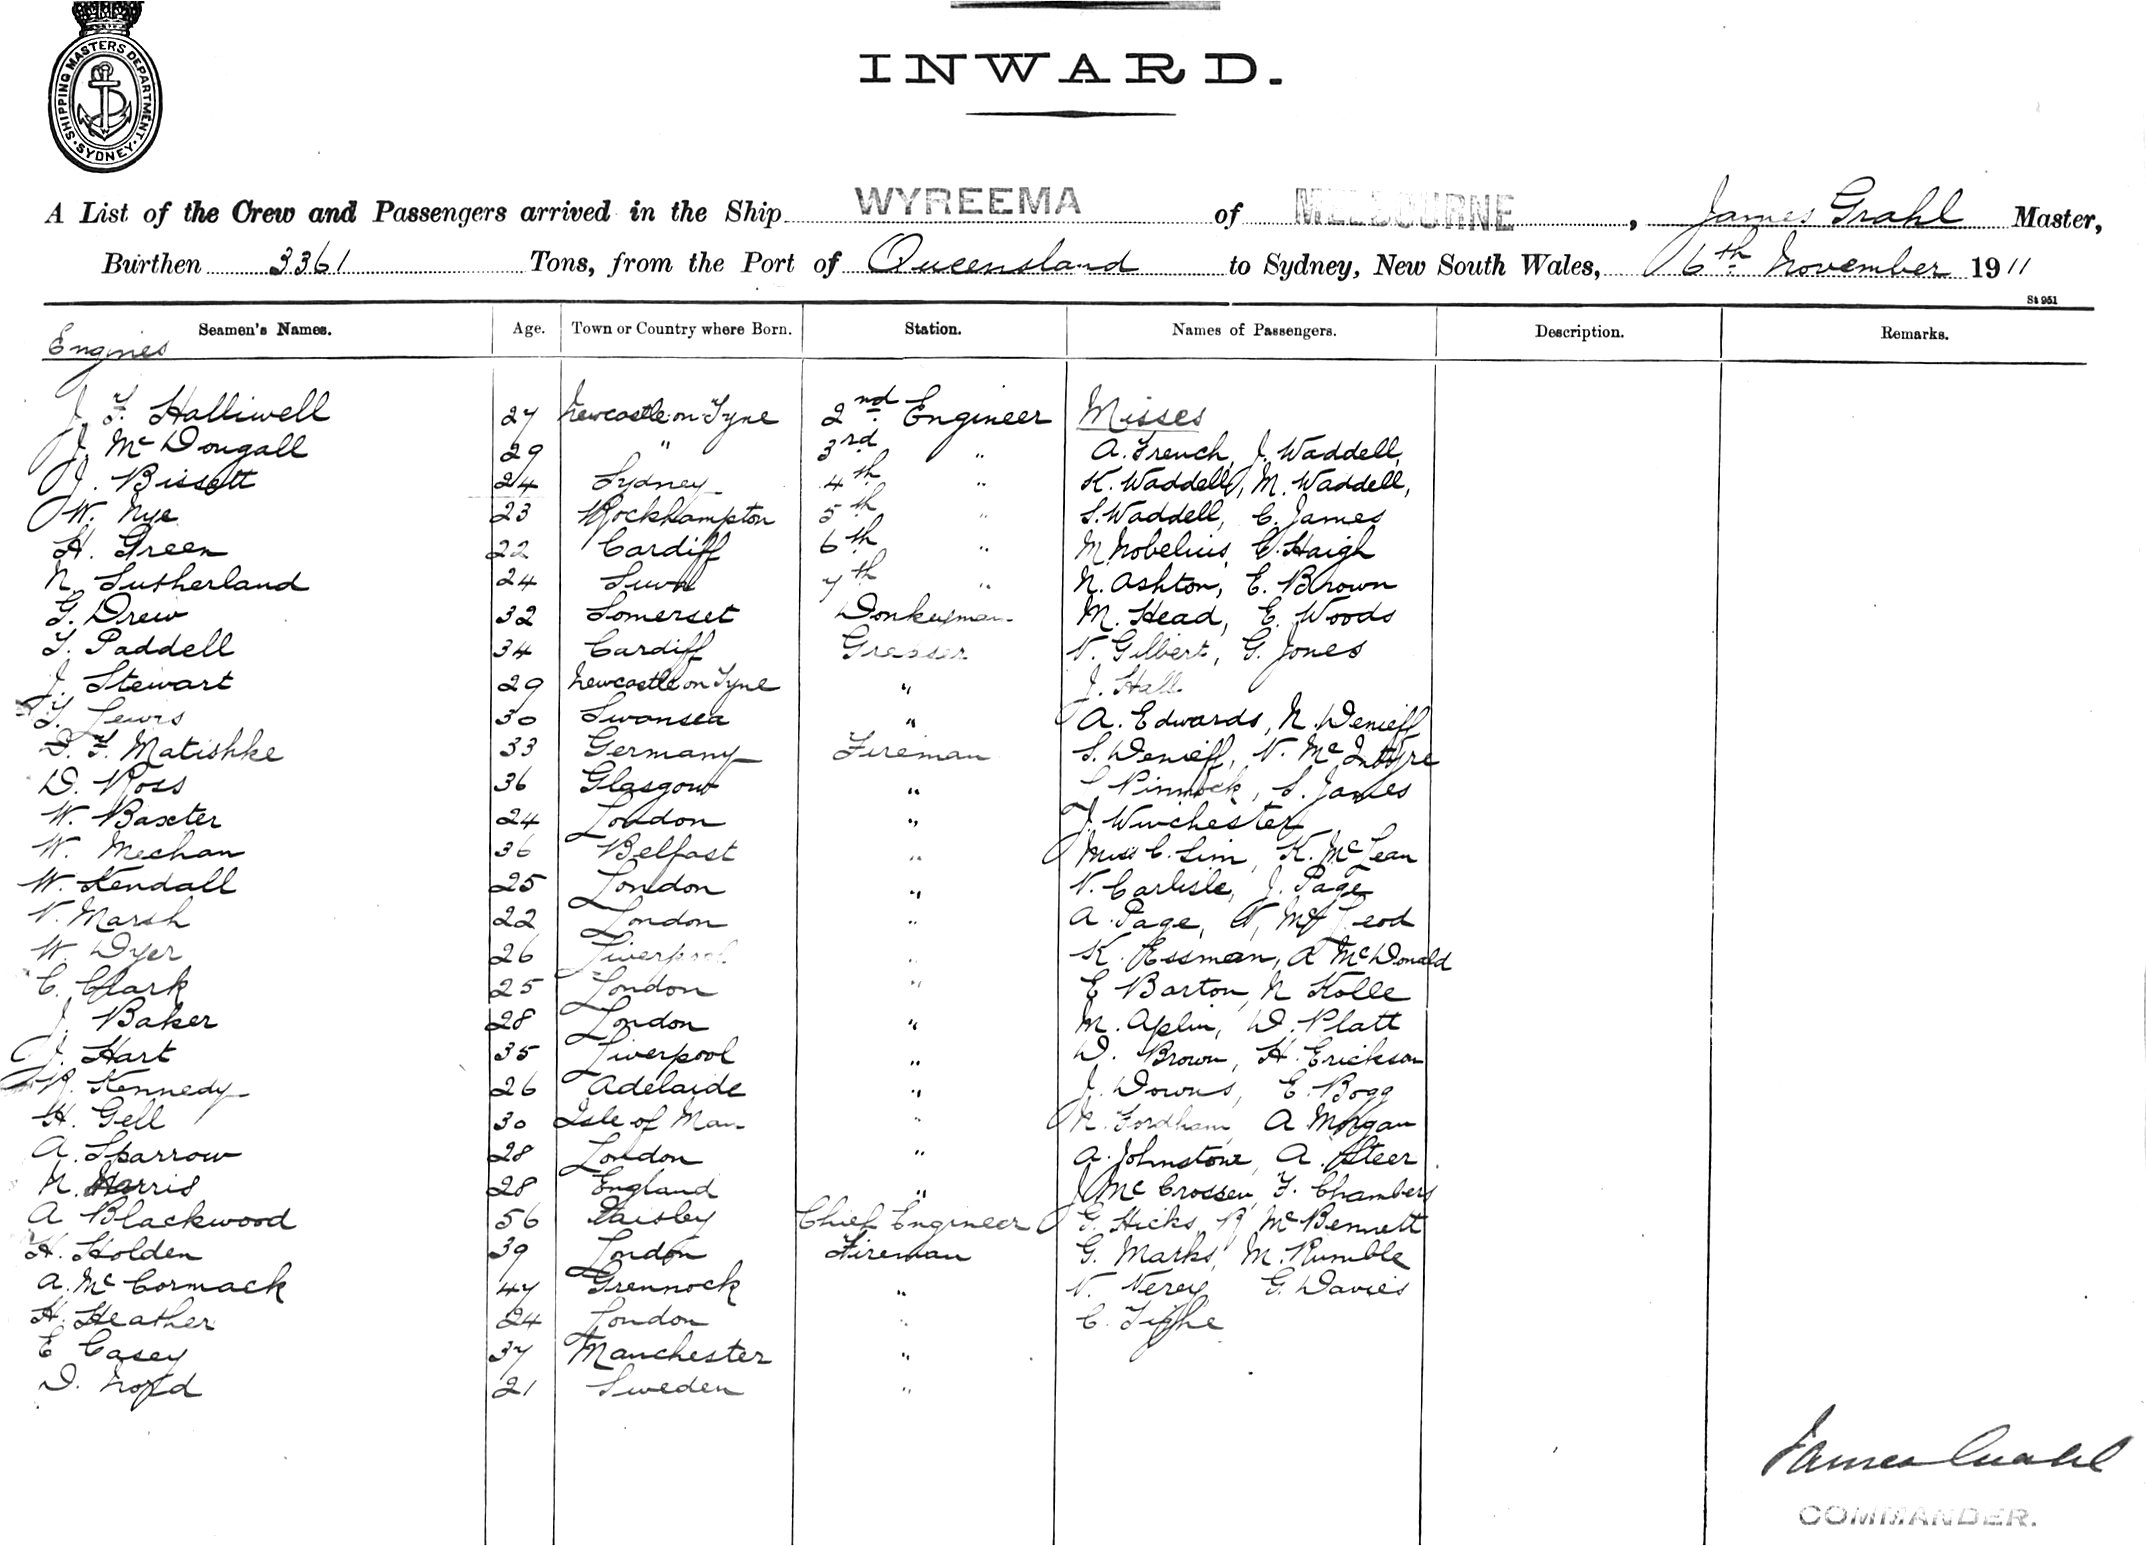 SHIPPING MASTERS DEPARTMENT
SYDNEY
INWARD.
A List of the Crew and Passengers arrived in the Ship WYREEMA of MELBOURNE, James Grahl Master,
Burthen 3361 Tons, from the Port of Queensland to Sydney, New South Wales, 6th November 1911
St 951
Seamen's Names. Age. Town or Country where Born. Station. Names of Passengers. Description. Remarks.
Engines
J. F. Halliwell 27 Newcastle on Tyne 2nd Engineer Misses
J. McDougall 29 " 3rd " A. French, J. Waddell,
J. Bissett 24 Sydney 4th " K. Waddell, M. Waddell,
W. Nye 23 Rockhampton 5th " S. Waddell, C. James
H. Green 22 Cardiff 6th " M Nobelius, C. Haigh
N. Sutherland 24 Suva 7th " N. Ashton, E. Brown
G. Drew 32 Somerset Donkeyman M. Head, E. Woods
T. Paddell 34 Cardiff Greaser V. Gilbert, G. Jones
J. Stewart 29 Newcastle on Tyne " J. Hall
T. Lewis 30 Swansea " A. Edwards, N. Denieff
D. F. Matishke 33 Germany Fireman S. Denieff, V. McIntyre
D. Ross 36 Glasgow " Pinnock, S. James
W. Baxter 24 London " J. Winchester
W. Mechan 36 Belfast " Miss C. Sim, K. McLean
W. Kendall 25 London " V. Carlisle, J. Page
V. Marsh 22 London " A. Page, V. McLeod
W. Dyer 26 Liverpool " K. Essman, A McDonald
C. Clark 25 London " E Barton, N Kolle
J. Baker 28 London " M. Aplin, D. Platt
J. Hart 35 Liverpool " D. Brown, H. Erickson
R. Kennedy 26 Adelaide " J. Downs, E. Bogg
H. Gell 30 Isle of Man " N. Fordham, A Morgan
A. Sparrow 28 London " A. Johnstone, A. Steer
N. Harris 28 England " J McCrossen, F. Chambers
A Blackwood 56 Paisley Chief Engineer G. Hicks, R McBennett
H. Holden 39 London Fireman G. Marks, M. Rumble
A. McCormack 47 Grennock " V. G. Davies
H. Heather 24 London " C. Tighe
E Casey 37 Manchester "
D. 21 Sweden "
James Grahl
COMMANDER.